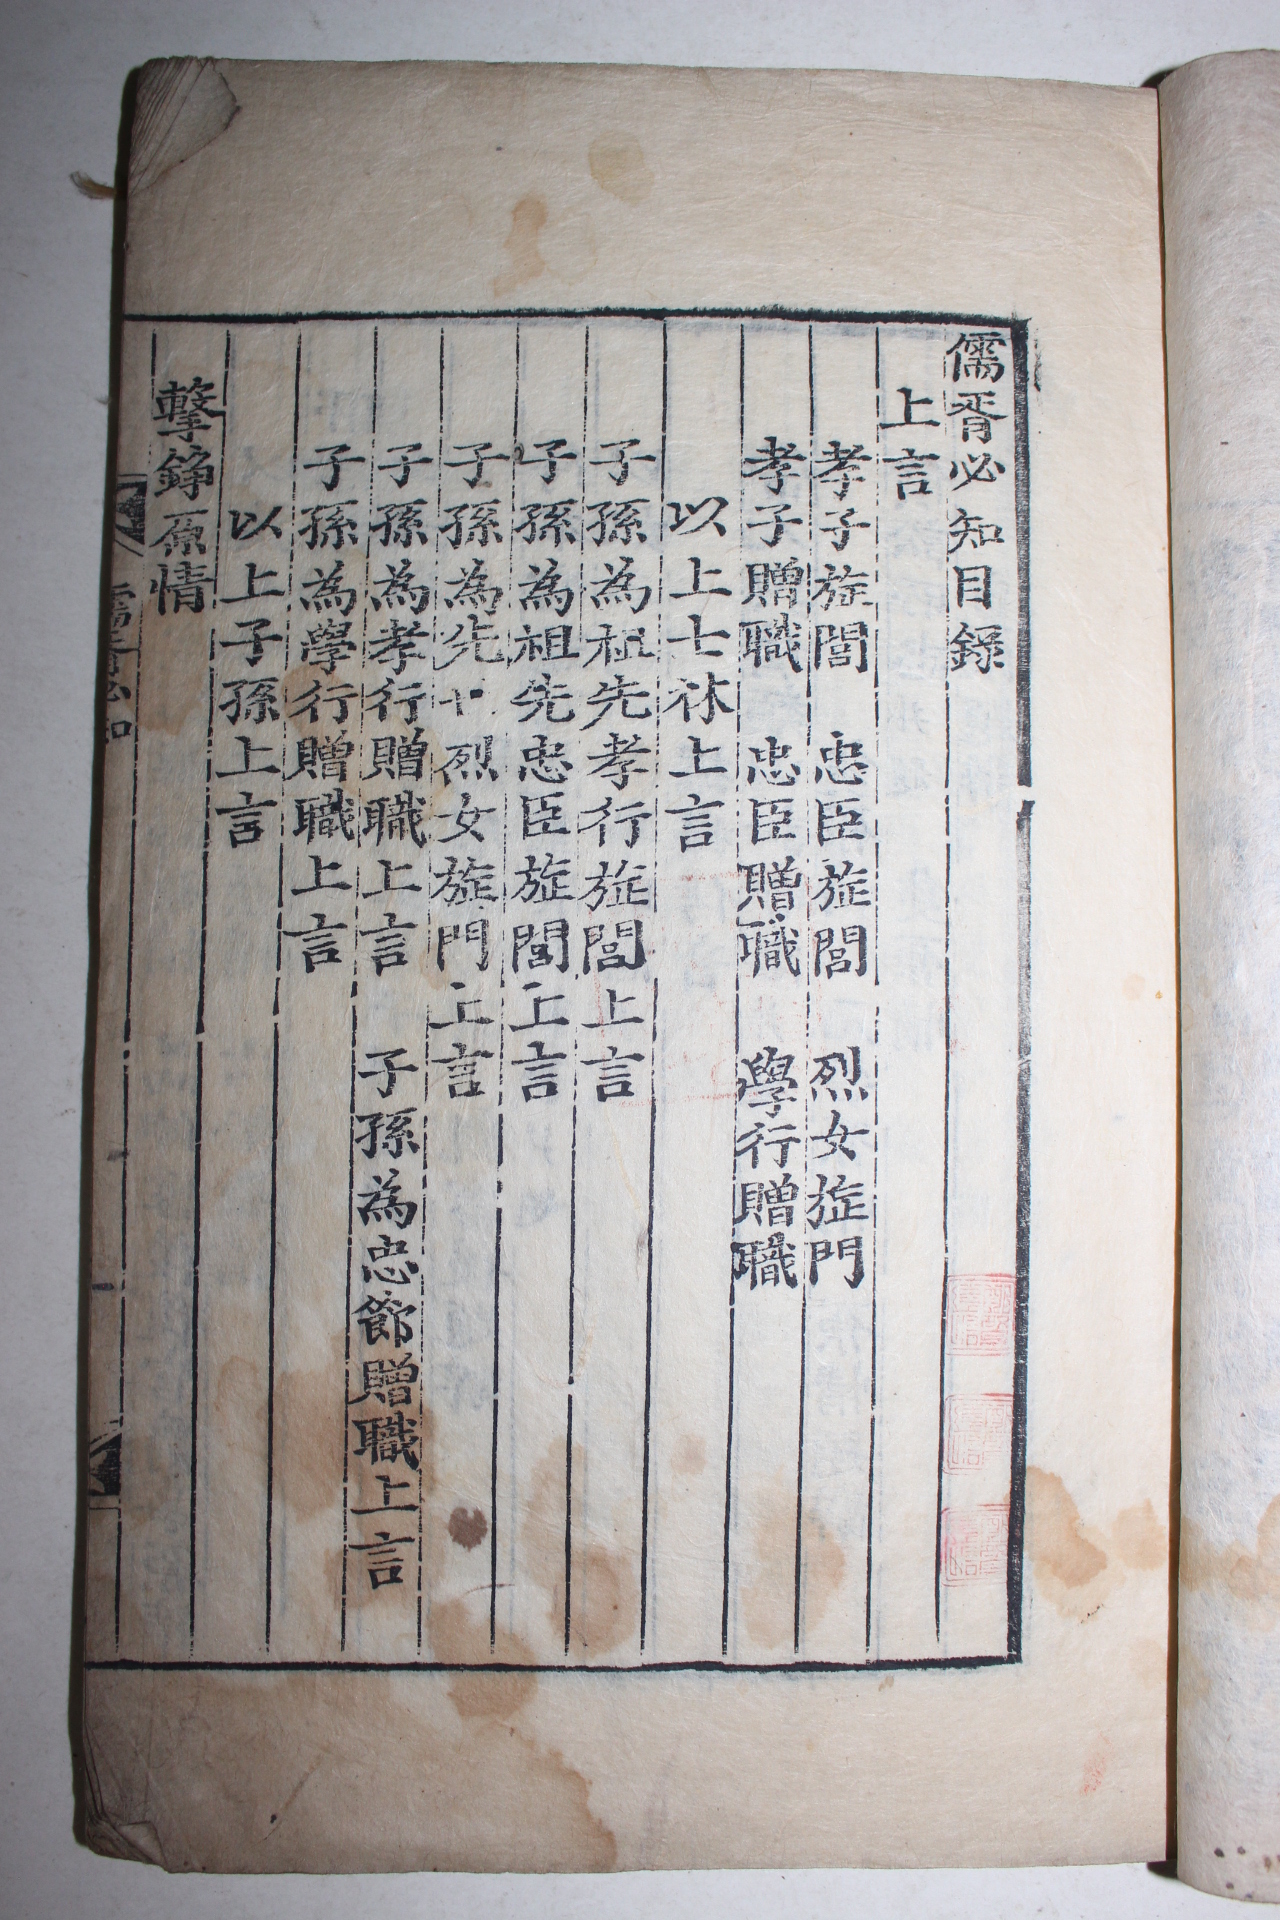 儒胥必知目錄
上言
孝子旌閭 忠臣旌閭 烈女旌門
孝子贈職 忠臣贈職 學行贈職
以上士林上言
子孫為祖先孝行旌閭上言
子孫為祖先忠臣旌閭上言
子孫為先 烈女旌門上言
子孫為孝行贈職上言 子孫為忠節贈職上言
子孫為學行贈職上言
以上子孫上言
擊錚原情
儒胥必知